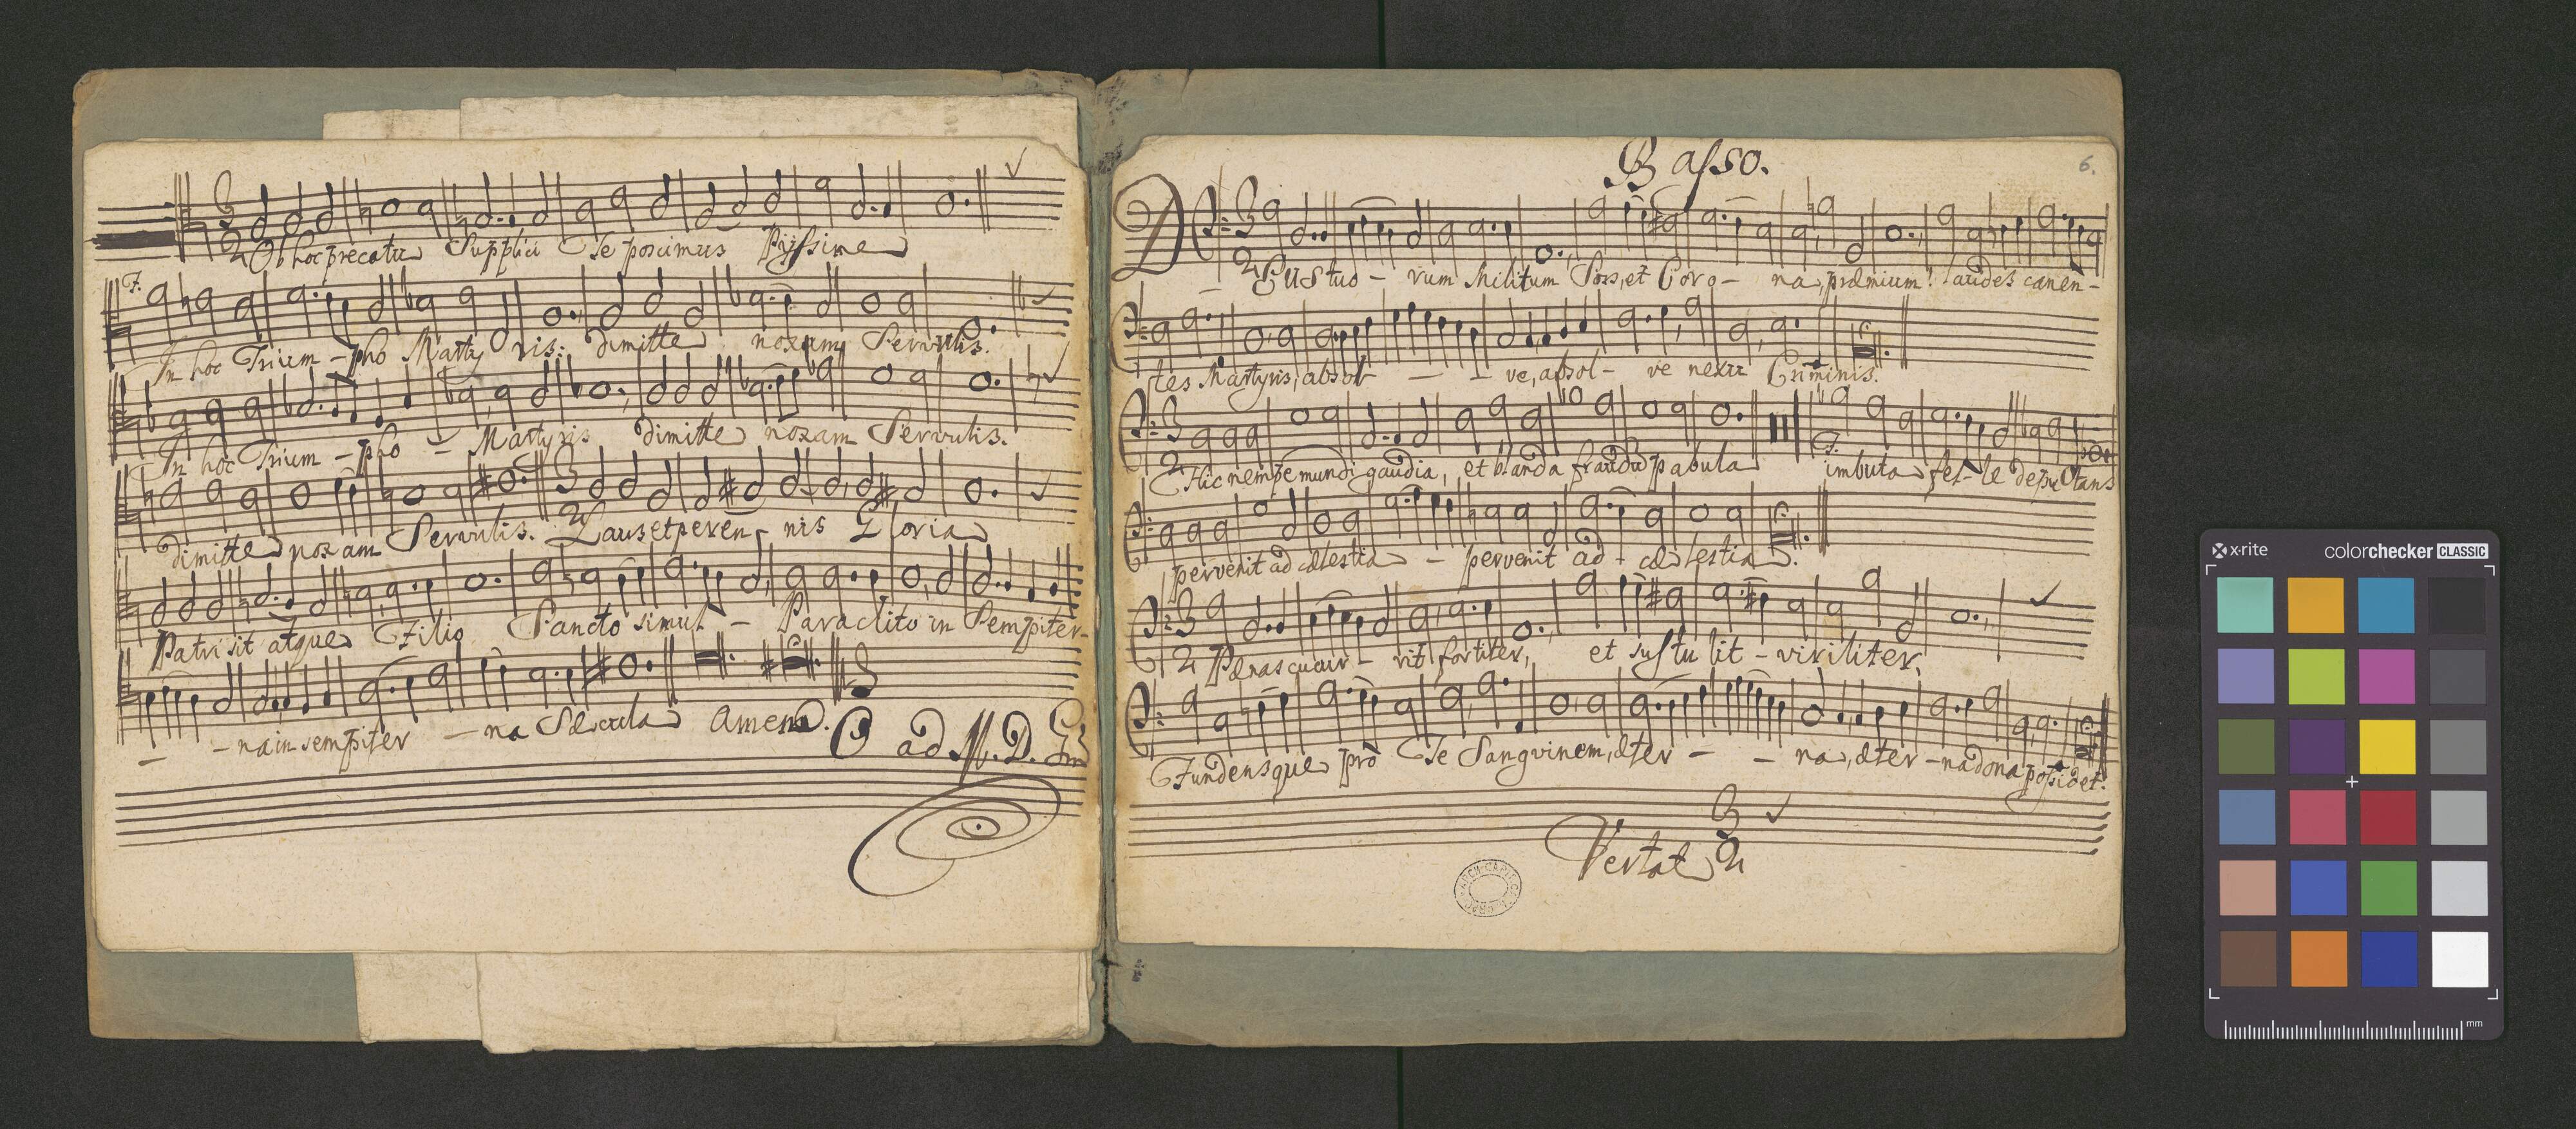 3
2 Ob hoc precatu Supplici Te poscimus Pijssime
F.
In hoc Trium - pho Martyris: dimitte noxam Servulis.
In hoc Trium - pho - Martyris dimitte noxam Servulis.
dimitte noxam Servulis. 3 2 Laus et peren - nis Gloria
Patri sit atque Filio Sancto simul - Paraclito in Sempiter-
- na in sempiter - na Sæcula Amen. O ad M. D. G.
Basso.
6.
3
2 DEus tuo - rum Militum Sors, et Coro - na, præmium! laudes canen-
tes Martyris, absol - - ve, absol - ve nexu Criminis.
3
2 Hic nempe mundi gaudia, et blanda fraudu pabula F. imbuta fel-le deputans
pervenit ad cælestia - pervenit ad - cælestia.
3
2 Pænas cucur - rit fortiter, et sustulit - viriliter,
Fundensque pro Te Sanguinem, æter - - na, æter - na dona possidet.
Vertat 3 2
x·rite colorchecker CLASSIC
mm